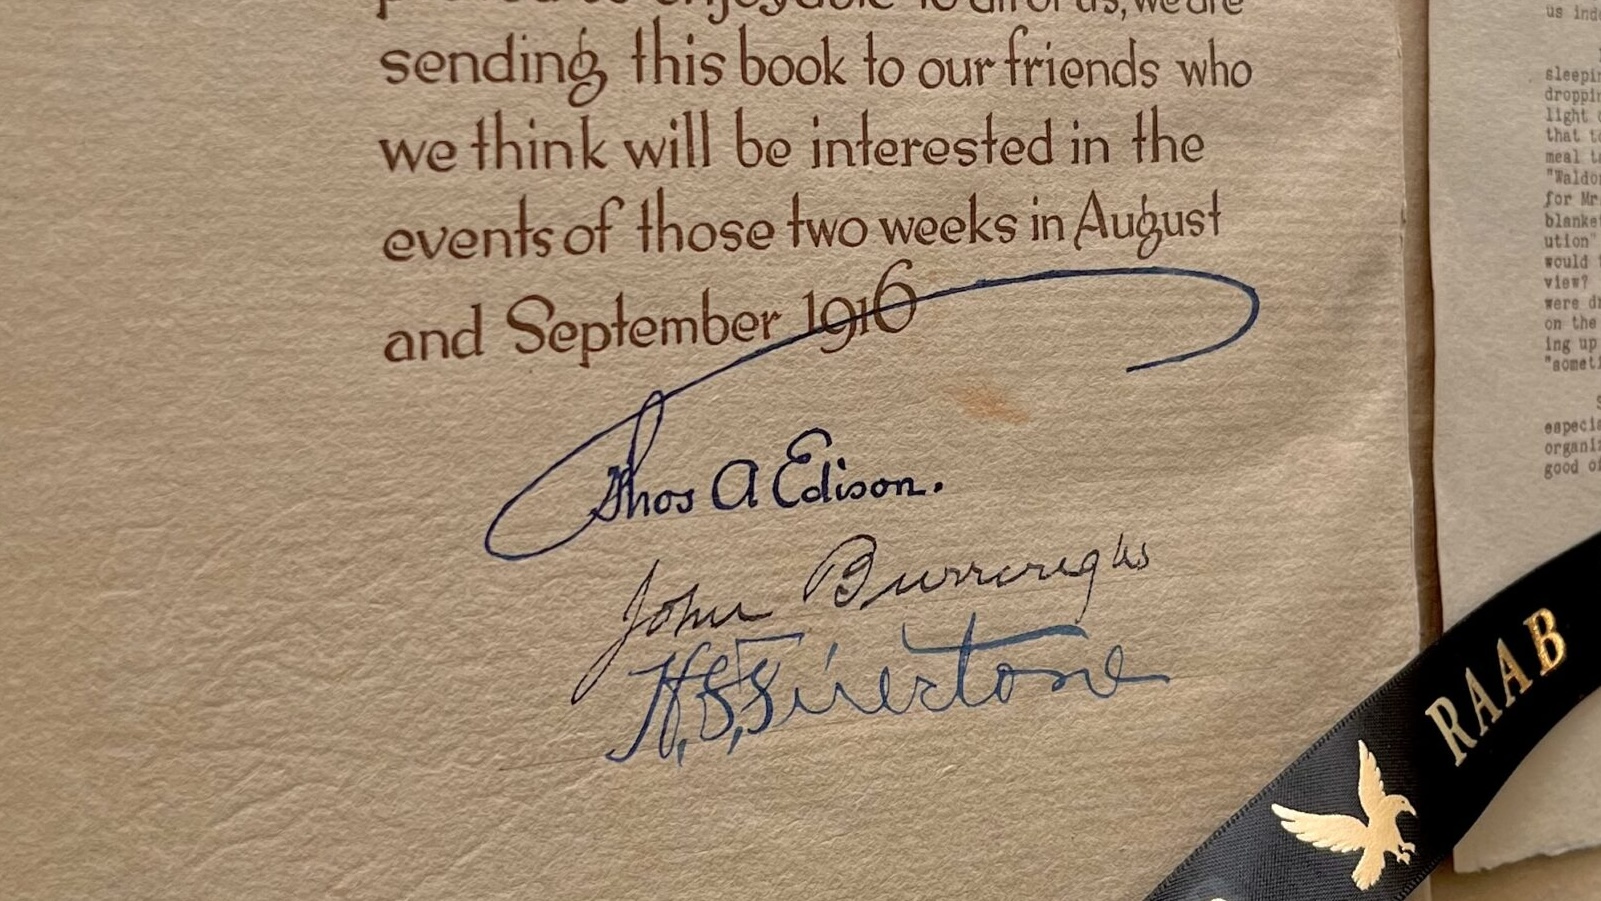 sending this book to our friends who
we think will be interested in the
events of those two weeks in August
and September 1916
Thos A Edison.
John Burroughs
H.S. Firestone
RAAB
us inde
sleepin
droppin
light
that to
meal
"Waldo
for Mr
blanket
ution"
would
view?
were
on the
ing up
"someti
especia
organiz
good of